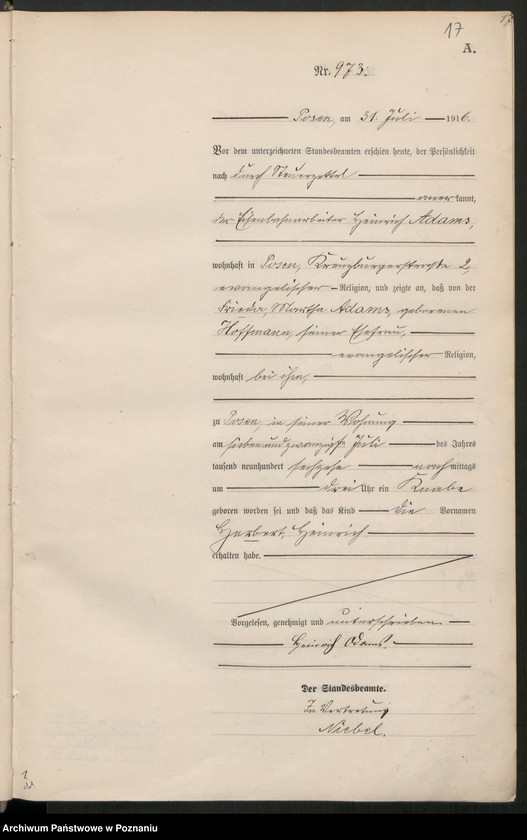 17
17
A.
Nr. 973.
Posen, am 31. Juli 1916.
Vor dem unterzeichneten Standesbeamten erschien heute, der Persönlichkeit
nach durch Steuerzettel
anerkannt,
der Eisenbahnarbeiter Heinrich Adams,
wohnhaft in Posen, Kreuzburgerstraße 2,
evangelischer Religion, und zeigte an, daß von der
Frieda, Martha Adams, geborenen
Hoffmann, seiner Ehefrau,
evangelischer Religion,
wohnhaft bei ihm,
zu Posen, in seiner Wohnung
am siebenundzwanzigsten Juli des Jahres
tausend neunhundert sechzehn nachmittags
um drei Uhr ein Knabe
geboren worden sei und daß das Kind die Vornamen
Herbert, Heinrich
erhalten habe.
Vorgelesen, genehmigt und unterschrieben
Heinrich Adams.
Der Standesbeamte.
In Vertretung
Niebel.
Archiwum Państwowe w Poznaniu